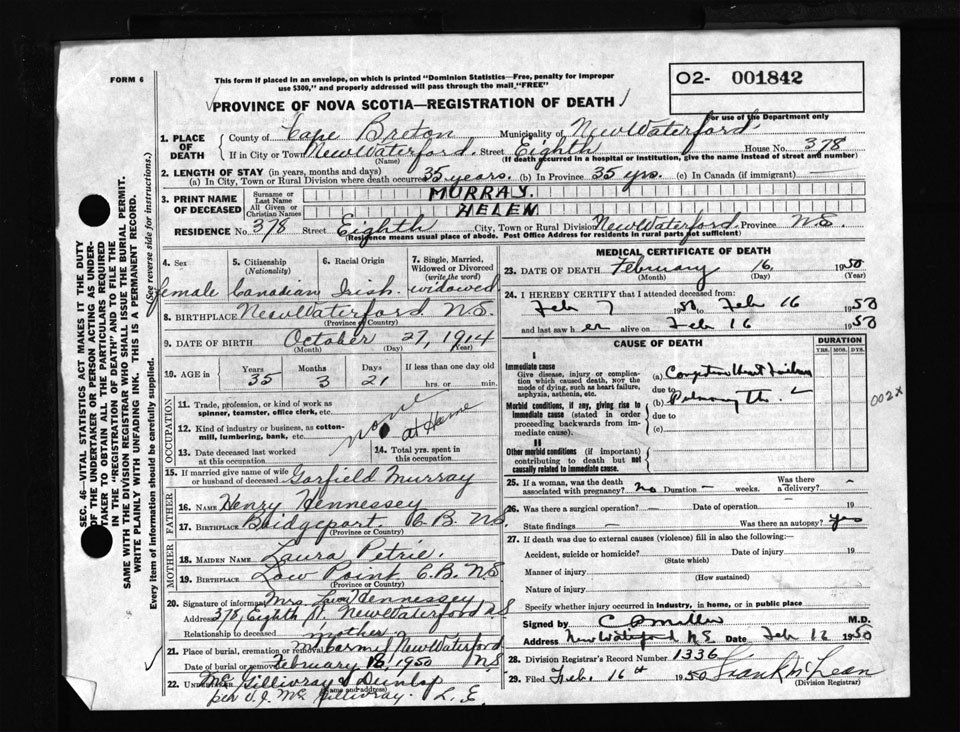 FORM 6
This form if placed in an envelope, on which is printed "Dominion Statistics—Free, penalty for improper
use $300," and properly addressed will pass through the mail "FREE"
O2- 001842
PROVINCE OF NOVA SCOTIA—REGISTRATION OF DEATH
For use of the Department only
1. PLACE OF DEATH County of Cape Breton Municipality of New Waterford
If in City or Town New Waterford. Street Eighth House No. 378
(Name) (If death occurred in a hospital or institution, give the name instead of street and number)
2. LENGTH OF STAY (in years, months and days)
(a) In City, Town or Rural Division where death occurred 35 years. (b) In Province 35 yrs. (c) In Canada (if immigrant) —
3. PRINT NAME OF DECEASED Surname or Last Name MURRAY.
All Given or Christian Names HELEN
RESIDENCE No. 378 Street Eighth City, Town or Rural Division New Waterford Province N.S.
(Residence means usual place of abode. Post Office Address for residents in rural parts not sufficient)
4. Sex 5. Citizenship (Nationality) 6. Racial Origin 7. Single, Married, Widowed or Divorced (write the word)
female Canadian Irish. widowed.
8. BIRTHPLACE New Waterford N.S.
(Province or Country)
9. DATE OF BIRTH October 27, 1914
(Month) (Day) (Year)
10. AGE in Years Months Days If less than one day old
35 3 21 hrs. or min.
OCCUPATION
11. Trade, profession, or kind of work as spinner, teamster, office clerk, etc. none
12. Kind of industry or business, as cotton-mill, lumbering, bank, etc. at Home
13. Date deceased last worked at this occupation
14. Total yrs. spent in this occupation
15. If married give name of wife or husband of deceased Garfield Murray
FATHER
16. Name Henry Hennessey
17. Birthplace Bridgeport C.B. N.S.
(Province or Country)
MOTHER
18. Maiden Name Laura Petrie.
19. Birthplace Low Point C.B. N.S
(Province or Country)
20. Signature of informant Mrs. Hennessey
Address 378, Eighth St, New Waterford N.S
Relationship to deceased mother
21. Place of burial, cremation or removal Mt Carmel New Waterford
Date of burial or removal February 1950 N.S
22. Undertaker Mc Gillivray & Dunlap
(Name and address)
per Mc Gillivray.
MEDICAL CERTIFICATE OF DEATH
23. DATE OF DEATH February 16, 1950
(Month) (Day) (Year)
24. I HEREBY CERTIFY that I attended deceased from:
Feb 7 1950 to Feb 16 1950
and last saw her alive on Feb 16 1950
CAUSE OF DEATH DURATION
YRS. MOS. DYS.
I
Immediate cause
Give disease, injury or complication which caused death, NOT the mode of dying, such as heart failure, asphyxia, asthenia, etc.
(a) Congestive Heart Failure
due to
Morbid conditions, if any, giving rise to immediate cause (stated in order proceeding backwards from immediate cause).
(b) Pulmonary Tb.
due to
(c)
002X
II
Other morbid conditions (if important) contributing to death but not causally related to immediate cause.
25. If a woman, was the death associated with pregnancy? no Duration — weeks. Was there a delivery? —
26. Was there a surgical operation? — Date of operation — 19
State findings — Was there an autopsy? yes
27. If death was due to external causes (violence) fill in also the following:—
Accident, suicide or homicide? Date of injury 19
(State which)
Manner of injury
(How sustained)
Nature of injury
Specify whether injury occurred in industry, in home, or in public place
Signed by C B Miller M.D.
Address New Waterford N.S. Date Feb 1950
28. Division Registrar's Record Number 1336
29. Filed Feb. 16th 1950 Frank McLean
(Division Registrar)
SEC. 46—VITAL STATISTICS ACT MAKES IT THE DUTY
OF THE UNDERTAKER OR PERSON ACTING AS UNDER-
TAKER TO OBTAIN ALL THE PARTICULARS REQUIRED
IN THE "REGISTRATION OF DEATH" AND TO FILE THE
SAME WITH THE DIVISION REGISTRAR WHO SHALL ISSUE THE BURIAL PERMIT.
WRITE PLAINLY WITH UNFADING INK. THIS IS A PERMANENT RECORD.
Every item of information should be carefully supplied. (See reverse side for instructions.)